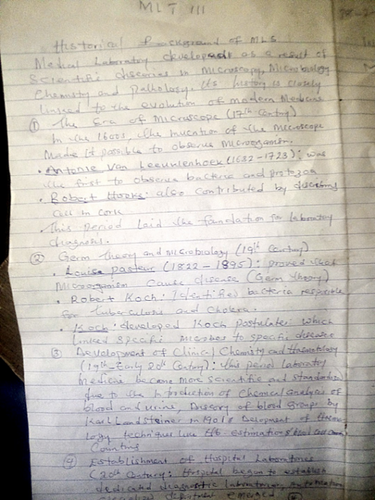 MLT 111
Historical Background of MLS
Medical Laboratory developed as a result of
Scientific discoveries in Microscopy, Microbiology
Chemistry and Pathology. Its history is closely
linked to the evolution of modern Medicine
① The Era of Microscope (17th Century)
In the 1600s, the invention of the Microscope
Made it possible to observe Microorganism.
• Antonie Van Leeuwenhoek (1632-1723): was
the first to observe bacteria and protozoa
• Robert Hooke: also contributed by describing
cell in cork
• This period laid the foundation for laboratory
diagnosis.
② Germ Theory and Microbiology (19th Century)
• Louise Pasteur (1822-1895): proved that
Microorganism cause disease (Germ theory)
• Robert Koch: Identified bacteria responsible
for tuberculosis and Cholera.
• Koch: developed Koch postulates which
linked specific microbes to specific disease
③ Development of Clinical Chemistry and Hematology
(19th - Early 20th Century): The period laboratory
Medicine became more scientific and
due to the introduction of Chemical analysis of
blood and urine. of blood groups by
Karl Landsteiner in 1901.
technique like estimation & blood
Counting
④ Establishment of Hospital Laboratories
(20th Century): Hospital began to establish
dedicated diagnostic laboratories,
emerged